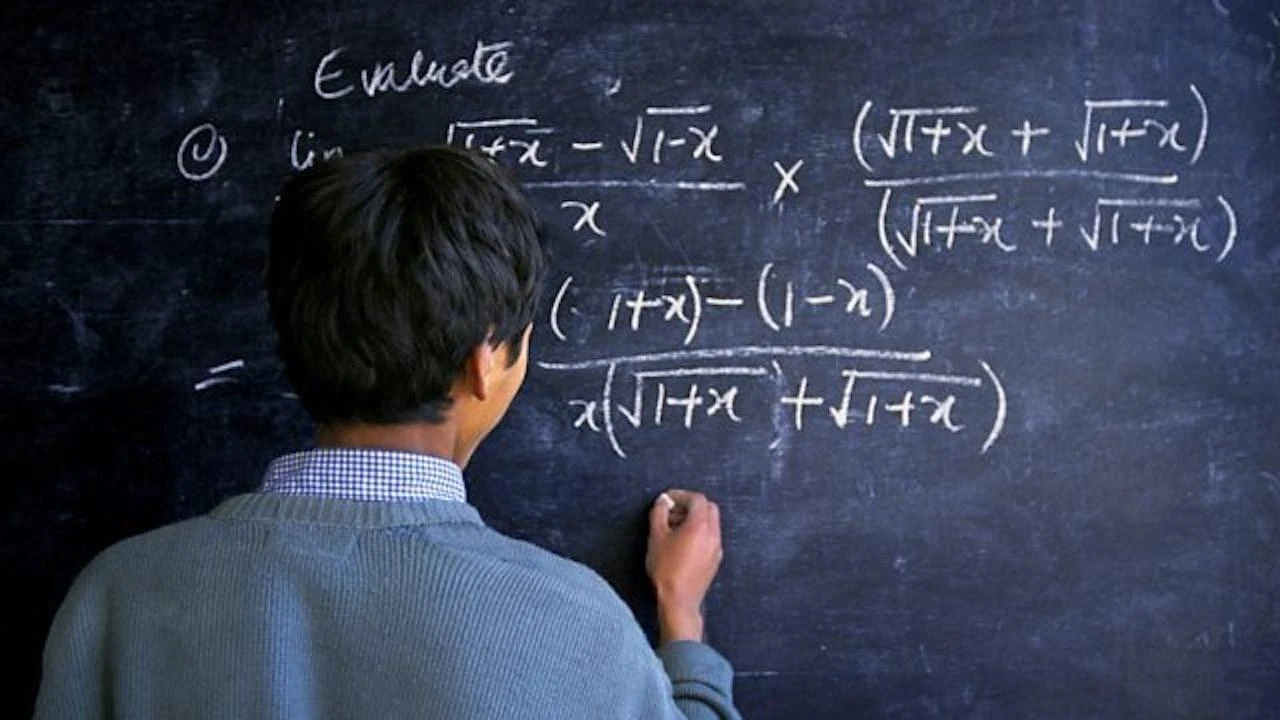 Evaluate
lim √1+x − √1-x / x × (√1+x + √1+x) / (√1+x + √1+x)
= (1+x) − (1-x) / x(√1+x + √1+x)